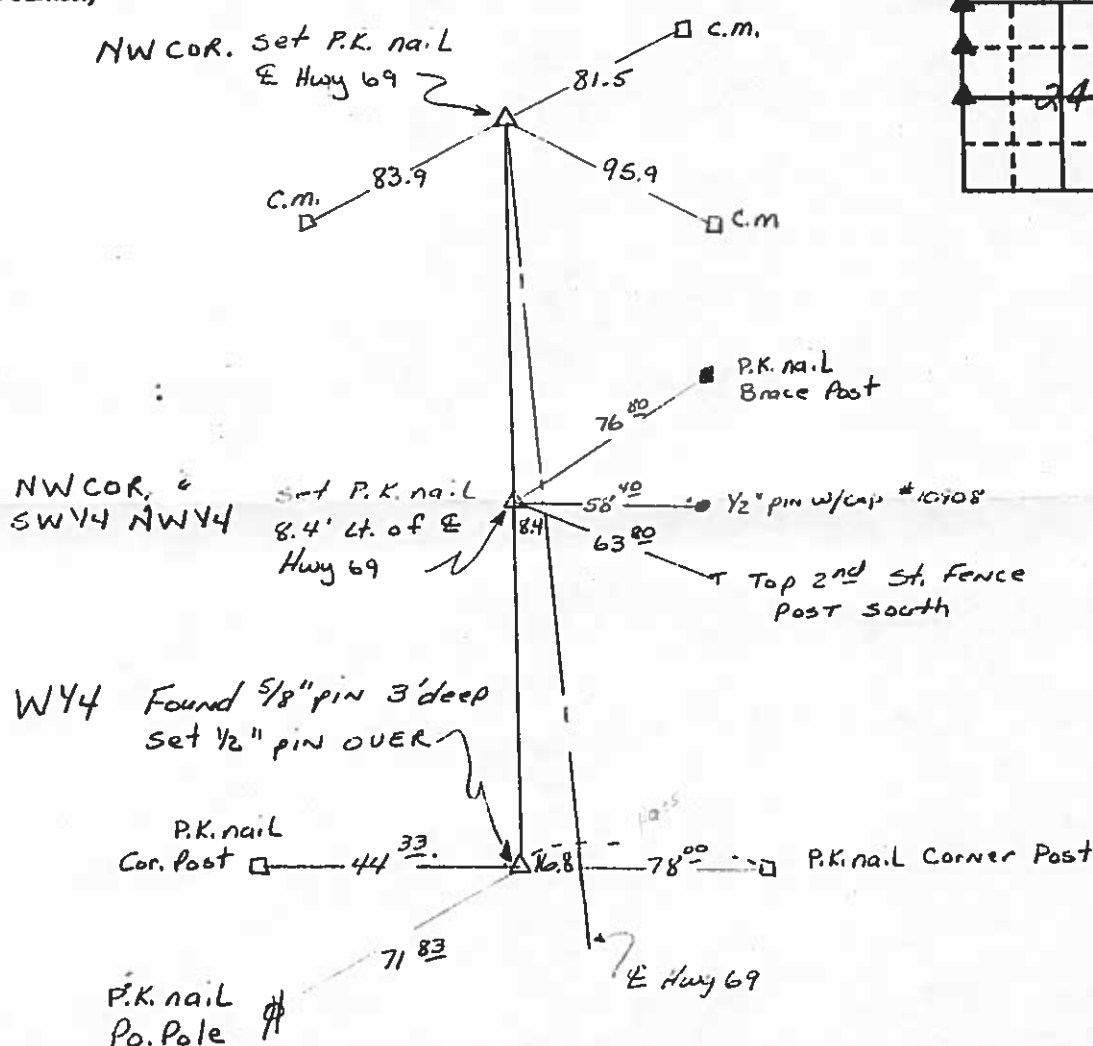 NW COR. set P.K. nail
℄ Hwy 69
81.5
c.m.
24
83.9
95.9
C.m.
C.m
P.K. nail
Brace Post
76 80
NW COR.
SW 1/4 NW 1/4
set P.K. nail
8.4' Lt. of ℄
Hwy 69
8.4
58' 40
1/2" pin w/cap
63 80
Top 2nd St. Fence
Post South
W 1/4 Found 5/8" pin 3' deep
set 1/2" pin OVER
P.K. nail
Cor. Post
44 33
16.8
78 00
P.K. nail Corner Post
71 83
℄ Hwy 69
P.K. nail
Po. Pole